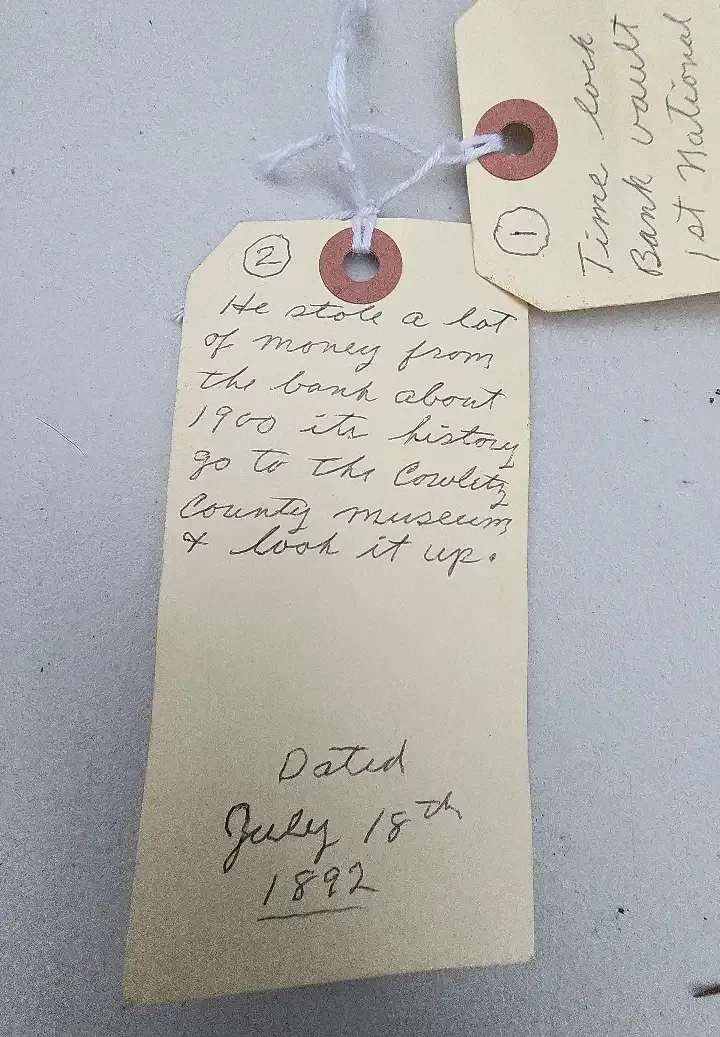 1
Time lock
Bank vault
1st National
2
He stole a lot
of money from
the bank about
1900 its history
go to the Cowletz
County museum
& look it up.
Dated
July 18th
1892